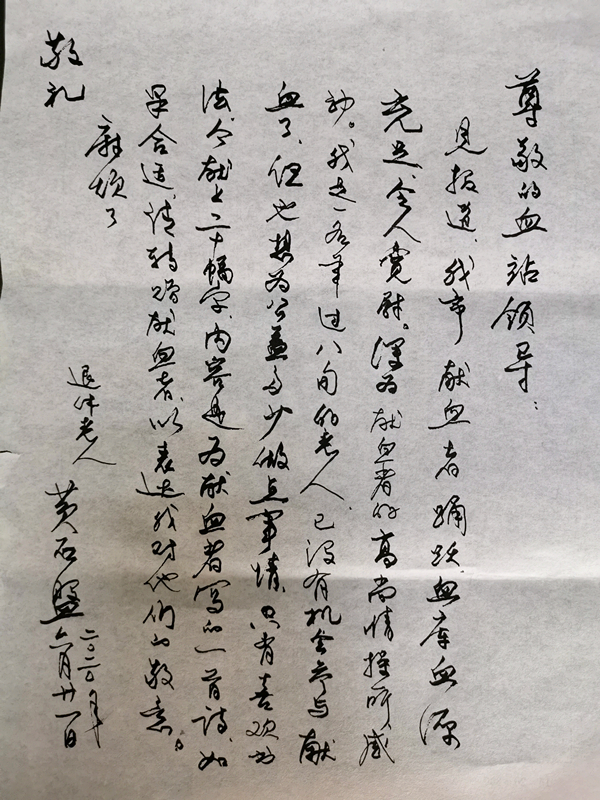 尊敬的血站领导：
见报道，我市献血者踊跃，血库血源
充足，令人宽慰。深为献血者的高尚情操所感
动。我是一名年过八旬的老人，已没有机会参与献
血了，但也想为公益多少做点事情，只有喜欢书
法，今献上二十幅字，内容是为献血者写的一首诗，如
果合适，请转赠献血者，以表达我对他们的敬意。
麻烦了
敬礼
退休老人
黄石盤
二〇二〇年
六月廿一日